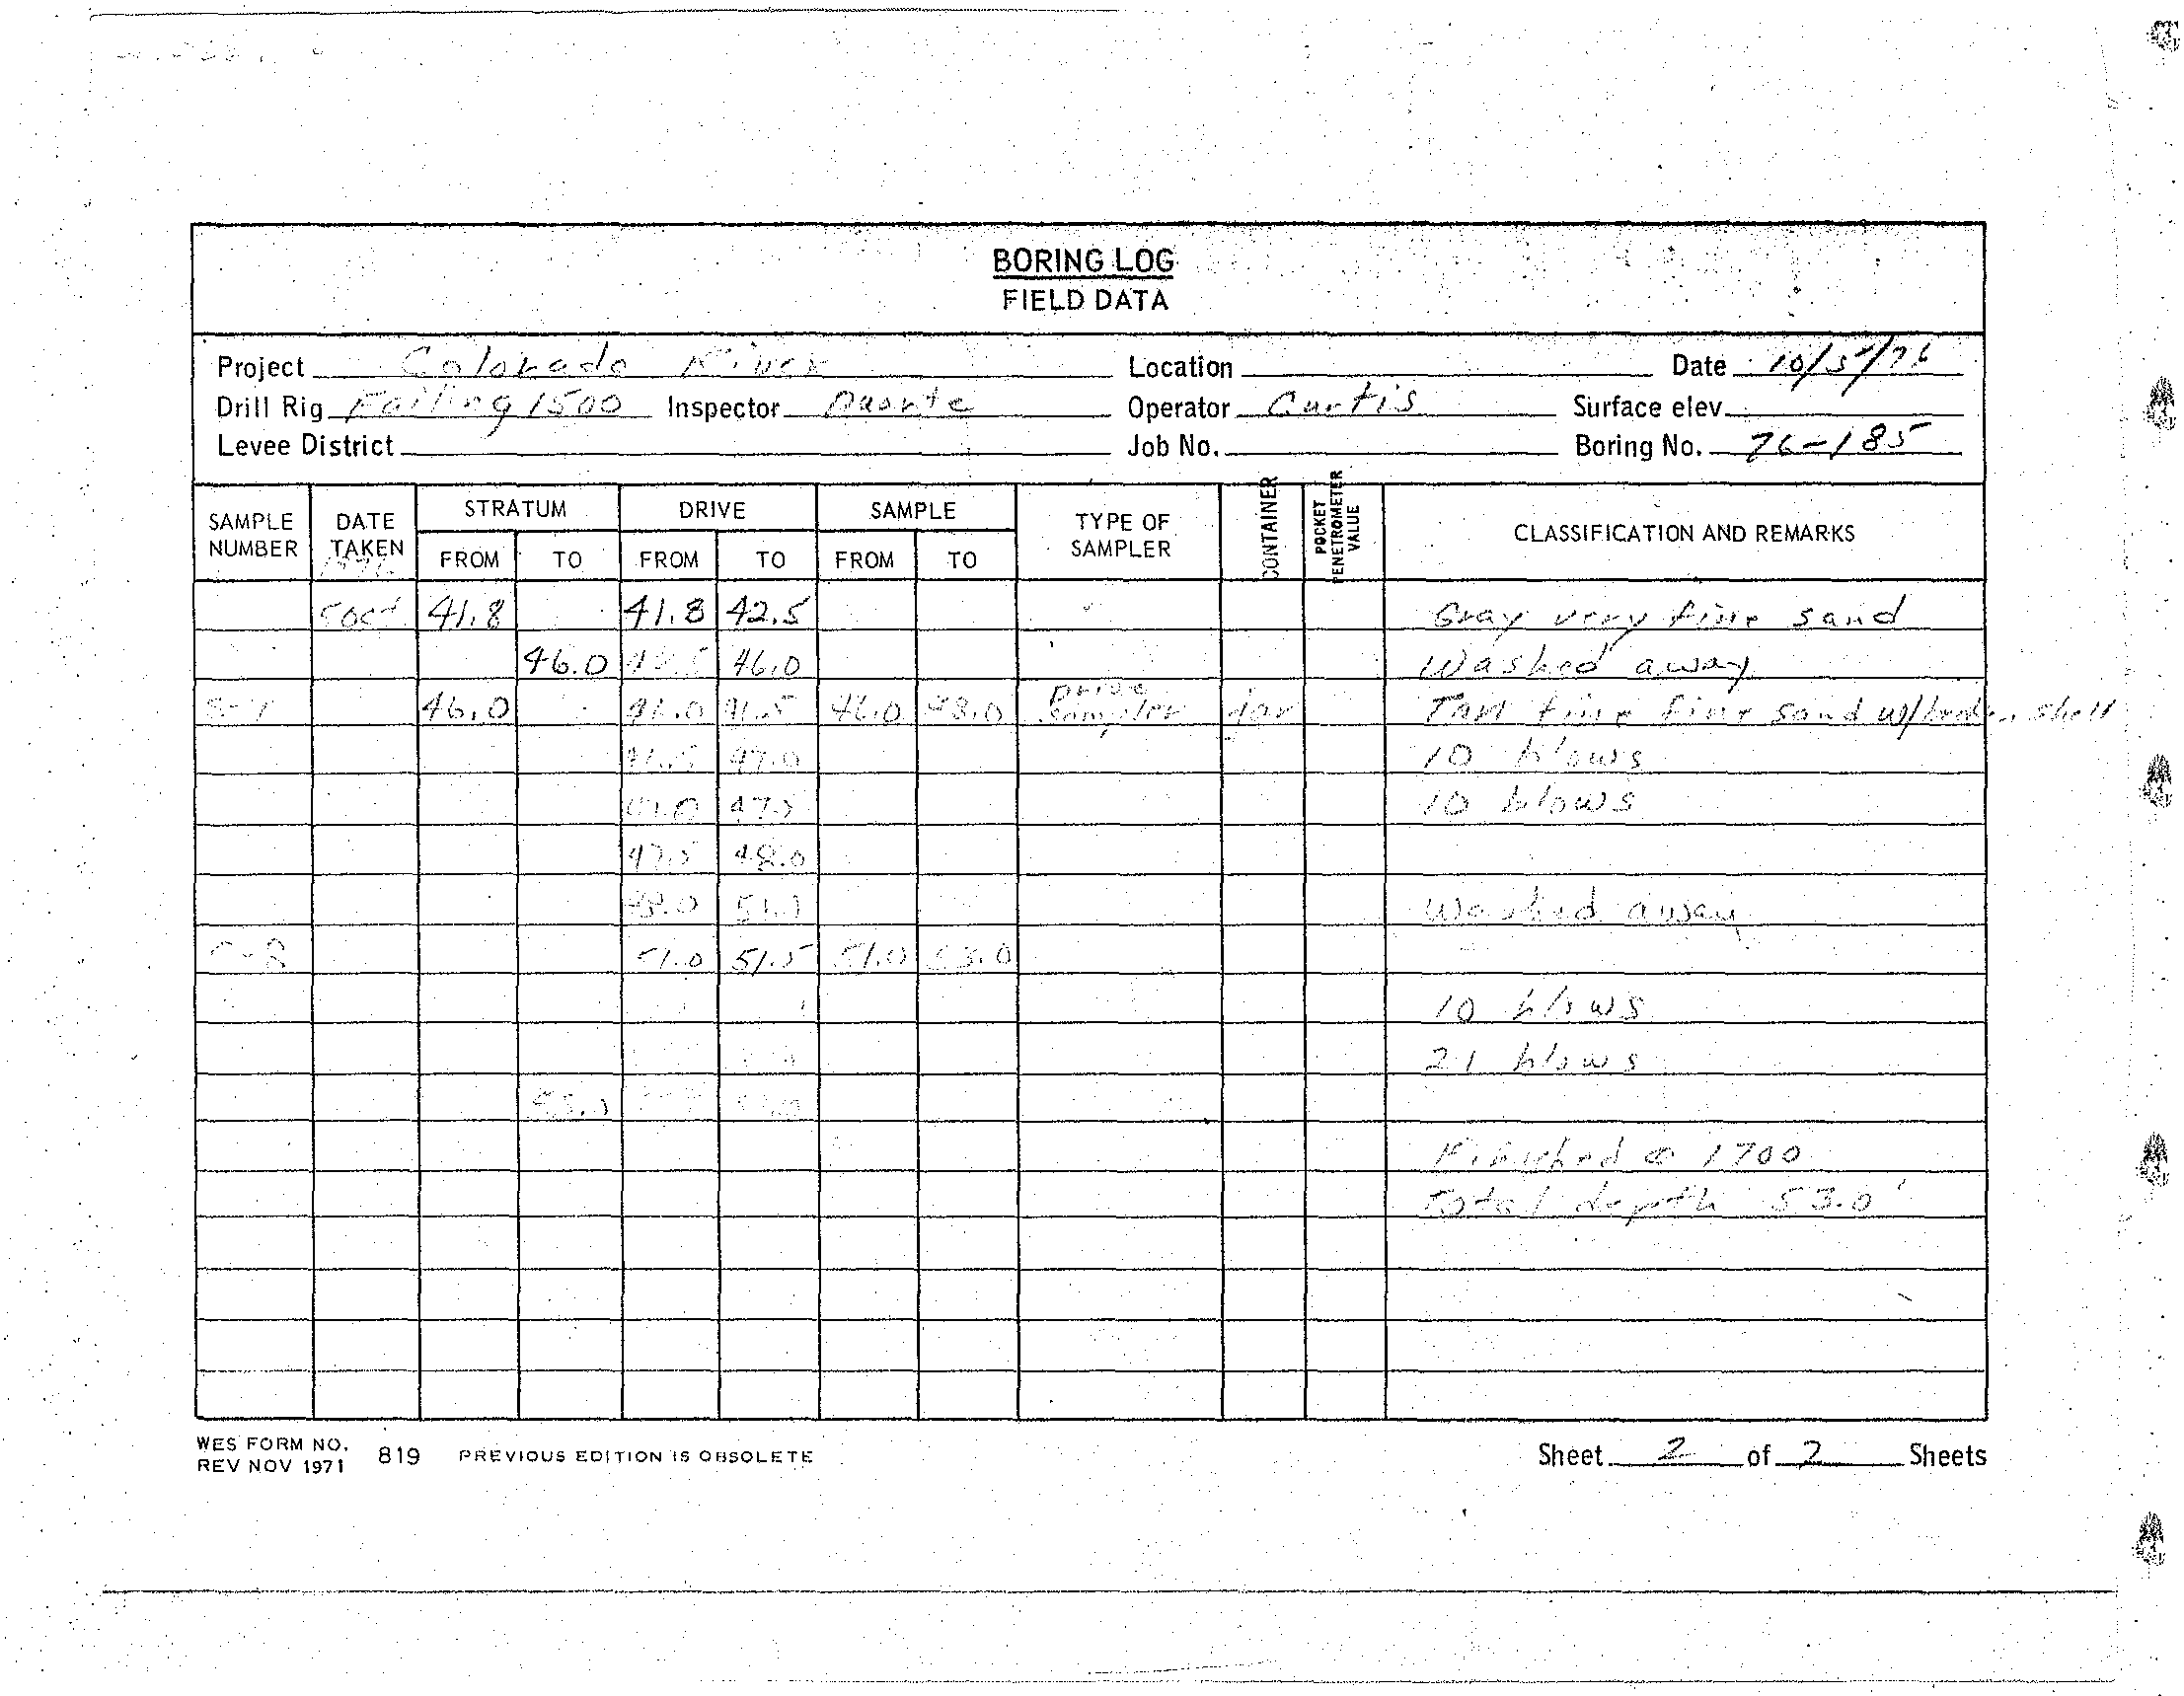 BORING LOG
FIELD DATA
Project Colorado River Location Date 10/5/76
Drill Rig Failing 1500 Inspector Duarte Operator Curtis Surface elev.
Levee District Job No. Boring No. 76-185
SAMPLE NUMBER DATE TAKEN 1976 STRATUM FROM TO DRIVE FROM TO SAMPLE FROM TO TYPE OF SAMPLER CONTAINER POCKET PENETROMETER VALUE CLASSIFICATION AND REMARKS
5 Oct 41.8 41.8 42.5 Gray very fine sand
46.0 42.5 46.0 Washed away
46.0 46.0 46.5 46.0 48.0 Drive Sampler Jar TAN fine fine sand w/broken shell
46.5 47.0 10 blows
47.0 47.5 10 blows
47.5 48.0
48.0 51.0 Washed away
S-8 51.0 51.5 51.0 53.0
10 blows
21 blows
53.0
Finished @ 1700
Total depth 53.0'
WES FORM NO. 819 PREVIOUS EDITION IS OBSOLETE Sheet 2 of 2 Sheets
REV NOV 1971